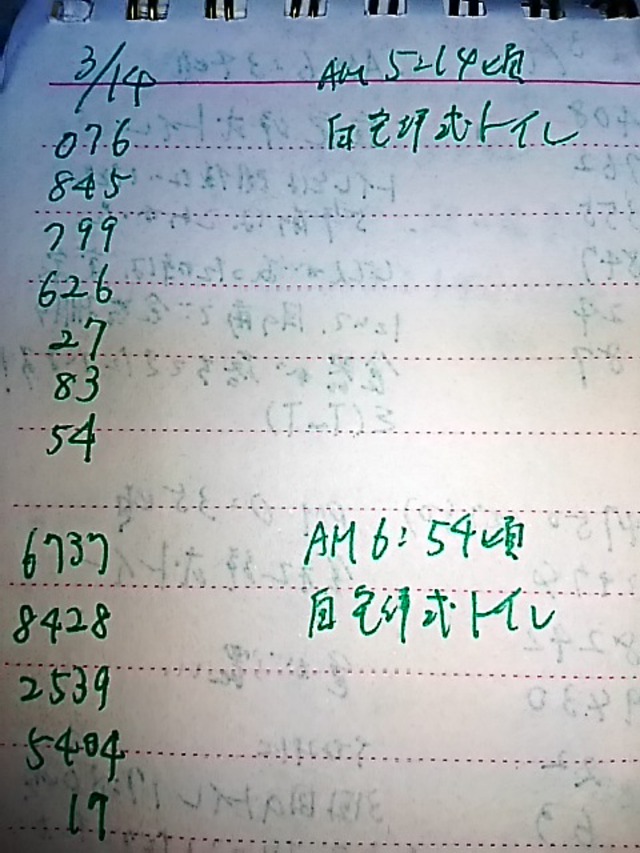 3/14 AM 5:14頃
076 自宅洋式トイレ
845
799
626
27
83
54
6737 AM 6:54頃
8428 自宅洋式トイレ
2539
5404
17